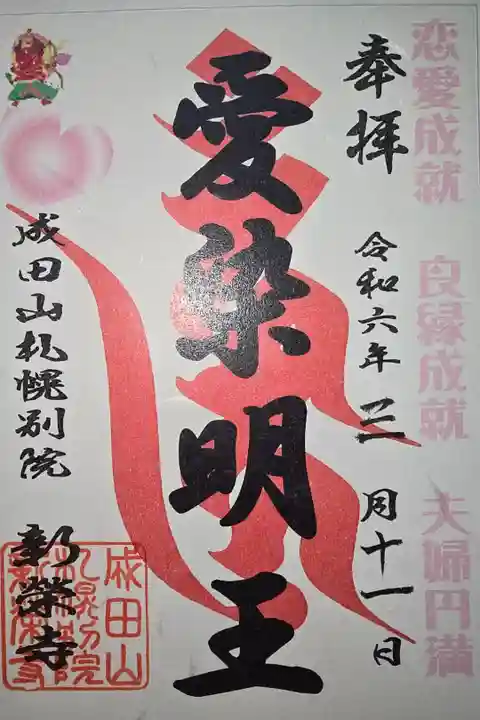 恋愛成就 良縁成就 夫婦円満
奉拝 令和六年 三月十一日
愛染明王
成田山札幌別院 新榮寺
成田山
札幌別院
新栄寺